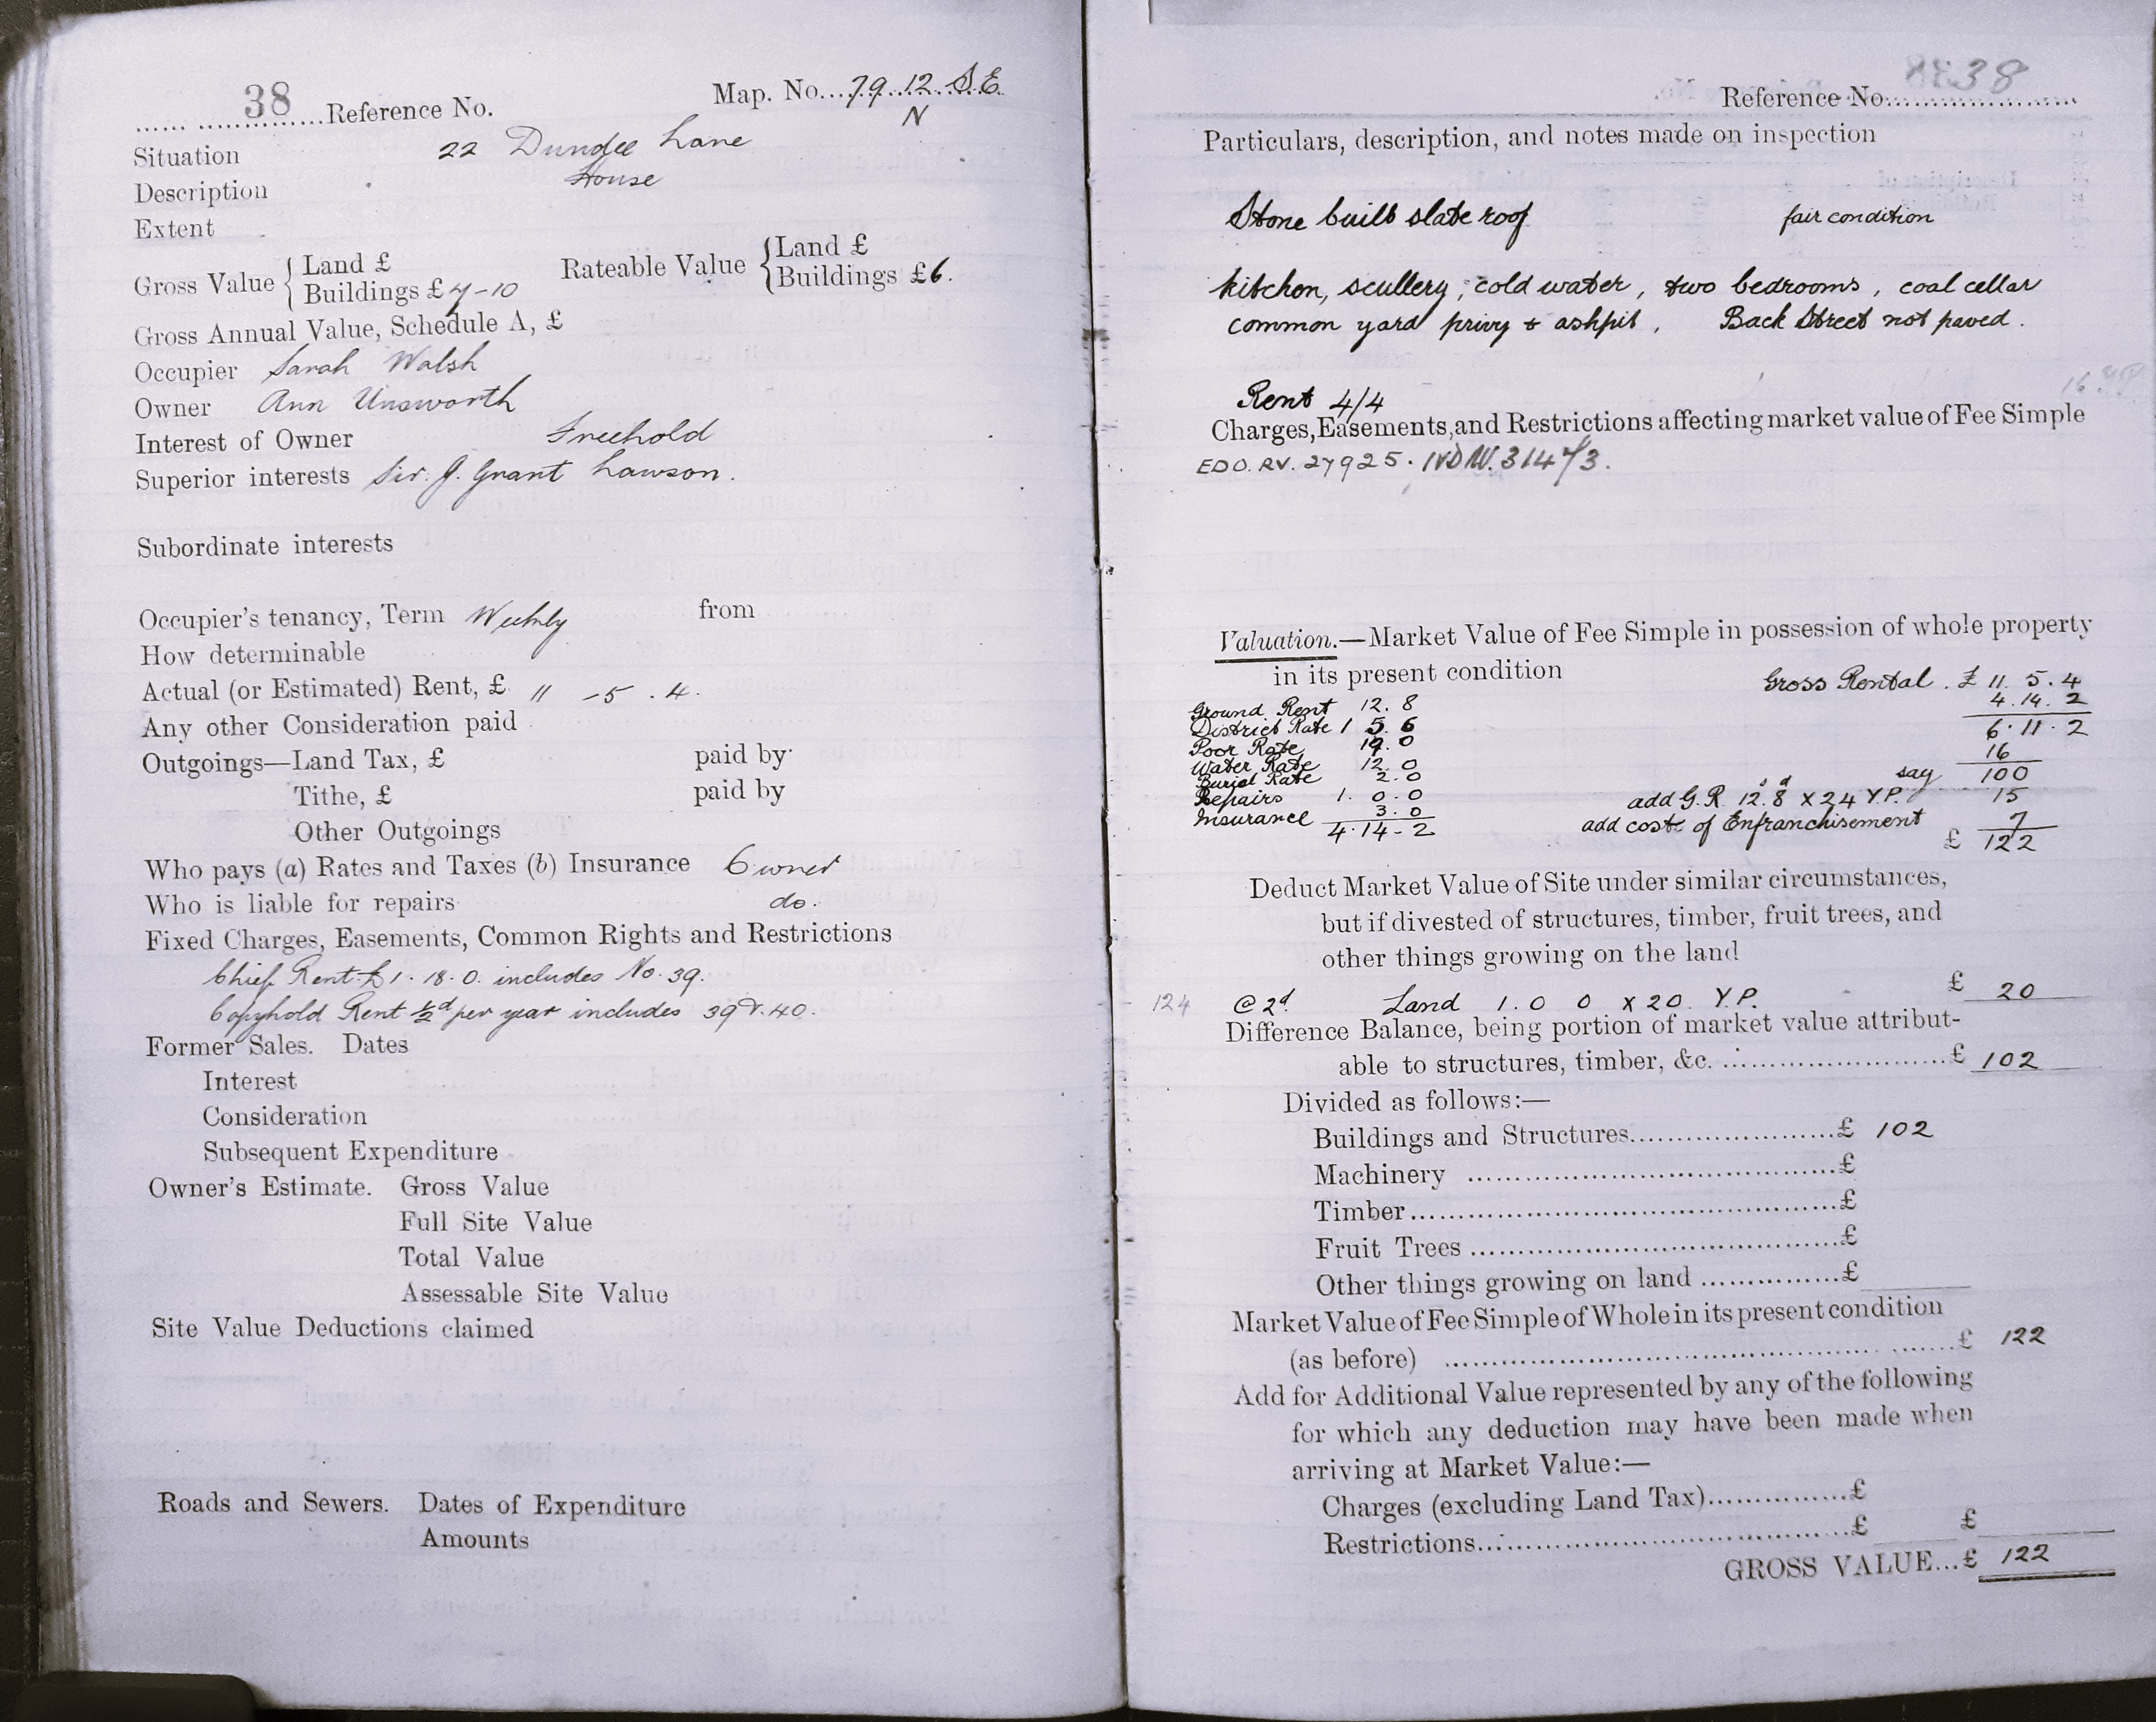 38 Reference No. Map. No. 79.12 S.E.
N
Situation 22 Dundee Lane
Description House
Extent
Gross Value { Land £
Buildings £ 7-10
Rateable Value { Land £
Buildings £6.
Gross Annual Value, Schedule A, £
Occupier Sarah Walsh
Owner Ann Unsworth
Interest of Owner Freehold
Superior interests Sir. J. Grant Lawson.
Subordinate interests
Occupier's tenancy, Term Weekly from
How determinable
Actual (or Estimated) Rent, £ 11 - 5 . 4.
Any other Consideration paid
Outgoings—Land Tax, £ paid by
Tithe, £ paid by
Other Outgoings
Who pays (a) Rates and Taxes (b) Insurance Owner
Who is liable for repairs do.
Fixed Charges, Easements, Common Rights and Restrictions
Chief Rent £1. 18. 0. includes No. 39.
Copyhold Rent ½d per year includes 39 & 40.
Former Sales. Dates
Interest
Consideration
Subsequent Expenditure
Owner's Estimate. Gross Value
Full Site Value
Total Value
Assessable Site Value
Site Value Deductions claimed
Roads and Sewers. Dates of Expenditure
Amounts
Reference No. 38
Particulars, description, and notes made on inspection
Stone built slate roof fair condition
kitchen, scullery, cold water, two bedrooms, coal cellar
common yard privy & ashpit, Back Street not paved.
Rent 4/4
Charges, Easements, and Restrictions affecting market value of Fee Simple
EDO. RV. 27925. IVD W. 31473.
Valuation.—Market Value of Fee Simple in possession of whole property
in its present condition
Gross Rental. £ 11. 5. 4
4. 14. 2
6. 11. 2
16
say 100
Ground Rent 12. 8
District Rate 1 5. 6
Poor Rate 19. 0
Water Rate 12. 0
Burial Rate 2. 0
Repairs 1. 0. 0
Insurance 3. 0
4. 14 - 2
add G.R. 12s. 8d x 24 Y.P. 15
add cost of Enfranchisement 7
£ 122
Deduct Market Value of Site under similar circumstances,
but if divested of structures, timber, fruit trees, and
other things growing on the land
124 @ 2d. Land 1. 0 0 x 20 Y.P. £ 20
Difference Balance, being portion of market value attribut-
able to structures, timber, &c. £ 102
Divided as follows:—
Buildings and Structures £ 102
Machinery £
Timber £
Fruit Trees £
Other things growing on land £
Market Value of Fee Simple of Whole in its present condition
(as before) £ 122
Add for Additional Value represented by any of the following
for which any deduction may have been made when
arriving at Market Value:—
Charges (excluding Land Tax) £
Restrictions £ £
GROSS VALUE... £ 122